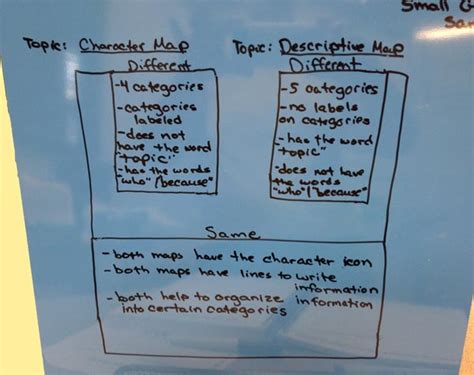 Small G
Sa
Topic: Character Map
Different
-4 categories
-categories
labeled
-does not
have the word
"topic"
-has the words
"who"/"because"
Topic: Descriptive Map
Different
-5 categories
-no labels
on categories
-has the word
"topic"
-does not have
the words
"who"/"because"
Same
-both maps have the character icon
-both maps have lines to write
information
-both help to organize information
into certain categories